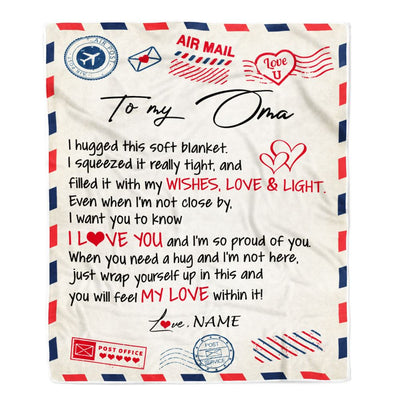 AIR MAIL
Love
U
To my Oma
I hugged this soft blanket.
I squeezed it really tight, and
filled it with my WISHES, LOVE & LIGHT.
Even when I'm not close by,
I want you to know
I L♥VE YOU and I'm so proud of you.
When you need a hug and I'm not here,
just wrap yourself up in this and
you will feel MY LOVE within it!
Love, NAME
POST OFFICE
POST
SERVICE